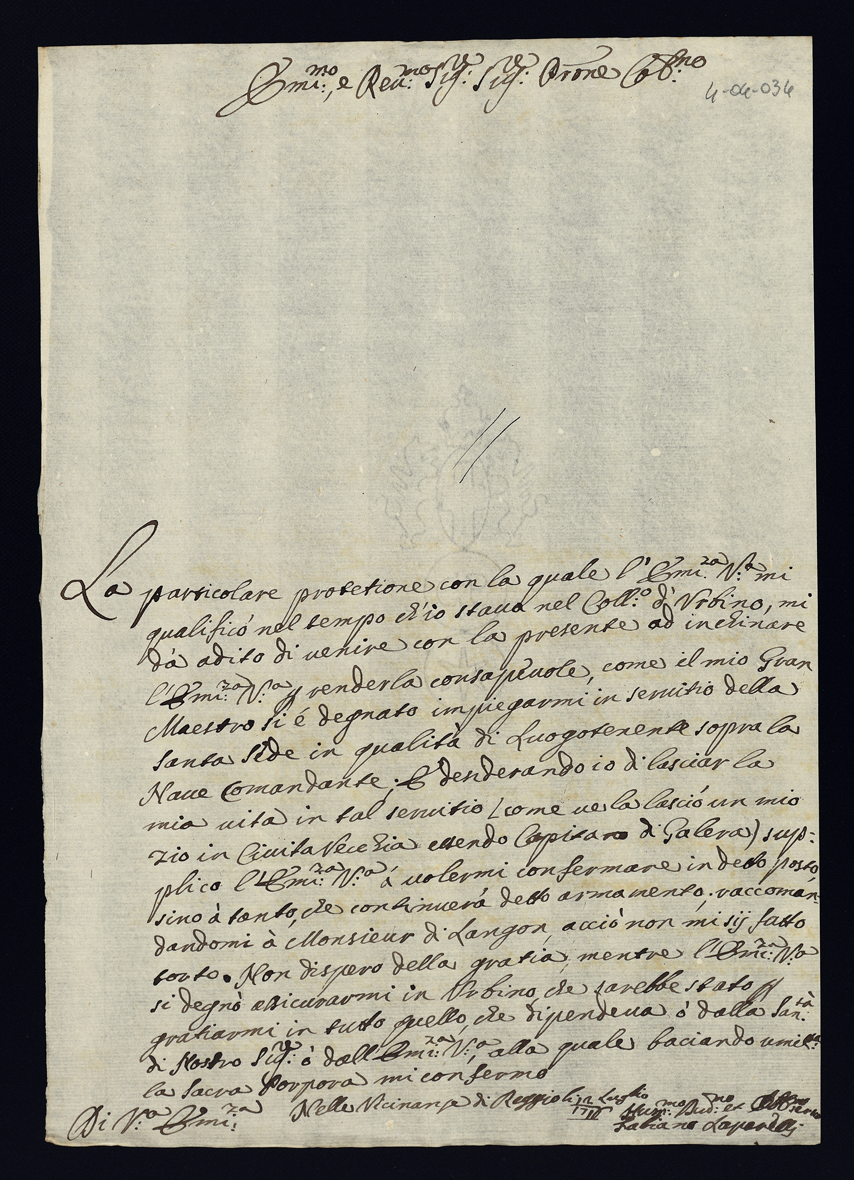 Emi:mo, e Reu:mo Sig:re Sig:re Prone Col:mo
4-04-034
La particolare protetione con la quale l'Emi:za V:a mi
qualificò nel tempo ch'io staua nel Coll:o d'Vrbino, mi
dà adito di uenire con la presente ad inchinare
l'Emi:za V:a p renderla consapeuole, come il mio Gran
Maestro si é degnato impiegarmi in seruitio della
Santa Sede in qualità di Luogotenente sopra la
Naue Comandante; E desiderando io di lasciar la
mia uita in tal seruitio (come ue la lasciò un mio
zio in CiuitaVecchia essendo Capitano di Galera) sup:
plico l'Emi:za V:a à uolermi confermare in detto posto
sino à tanto, che continuerà detto armamento, raccoman:
dandomi à Monsieur di Langon, acciò non mi sij fatto
torto. Non dispero della gratia, mentre l'Emi:za V:a
si degnò assicurarmi in Vrbino, che sarebbe stato p
gratiarmi in tutto quello, che dipendeua ò dalla San:tà
di Nostro Sig:re ò dall'Emi:za V:a, alla quale baciando umil:te
la Sacra Porpora mi confermo
Di V:a Emi:za Nelle Vicinanze di 12 Luglio
Hum:mo Diu:mo et
Fabiano